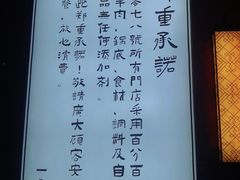 重承諾
七八號所有門店采用百分百
羊肉、鍋底、食材、調料及自
品无任何添加剂。
此郑重承諾!敬請廣大顧客安
餐,放心消費。
一